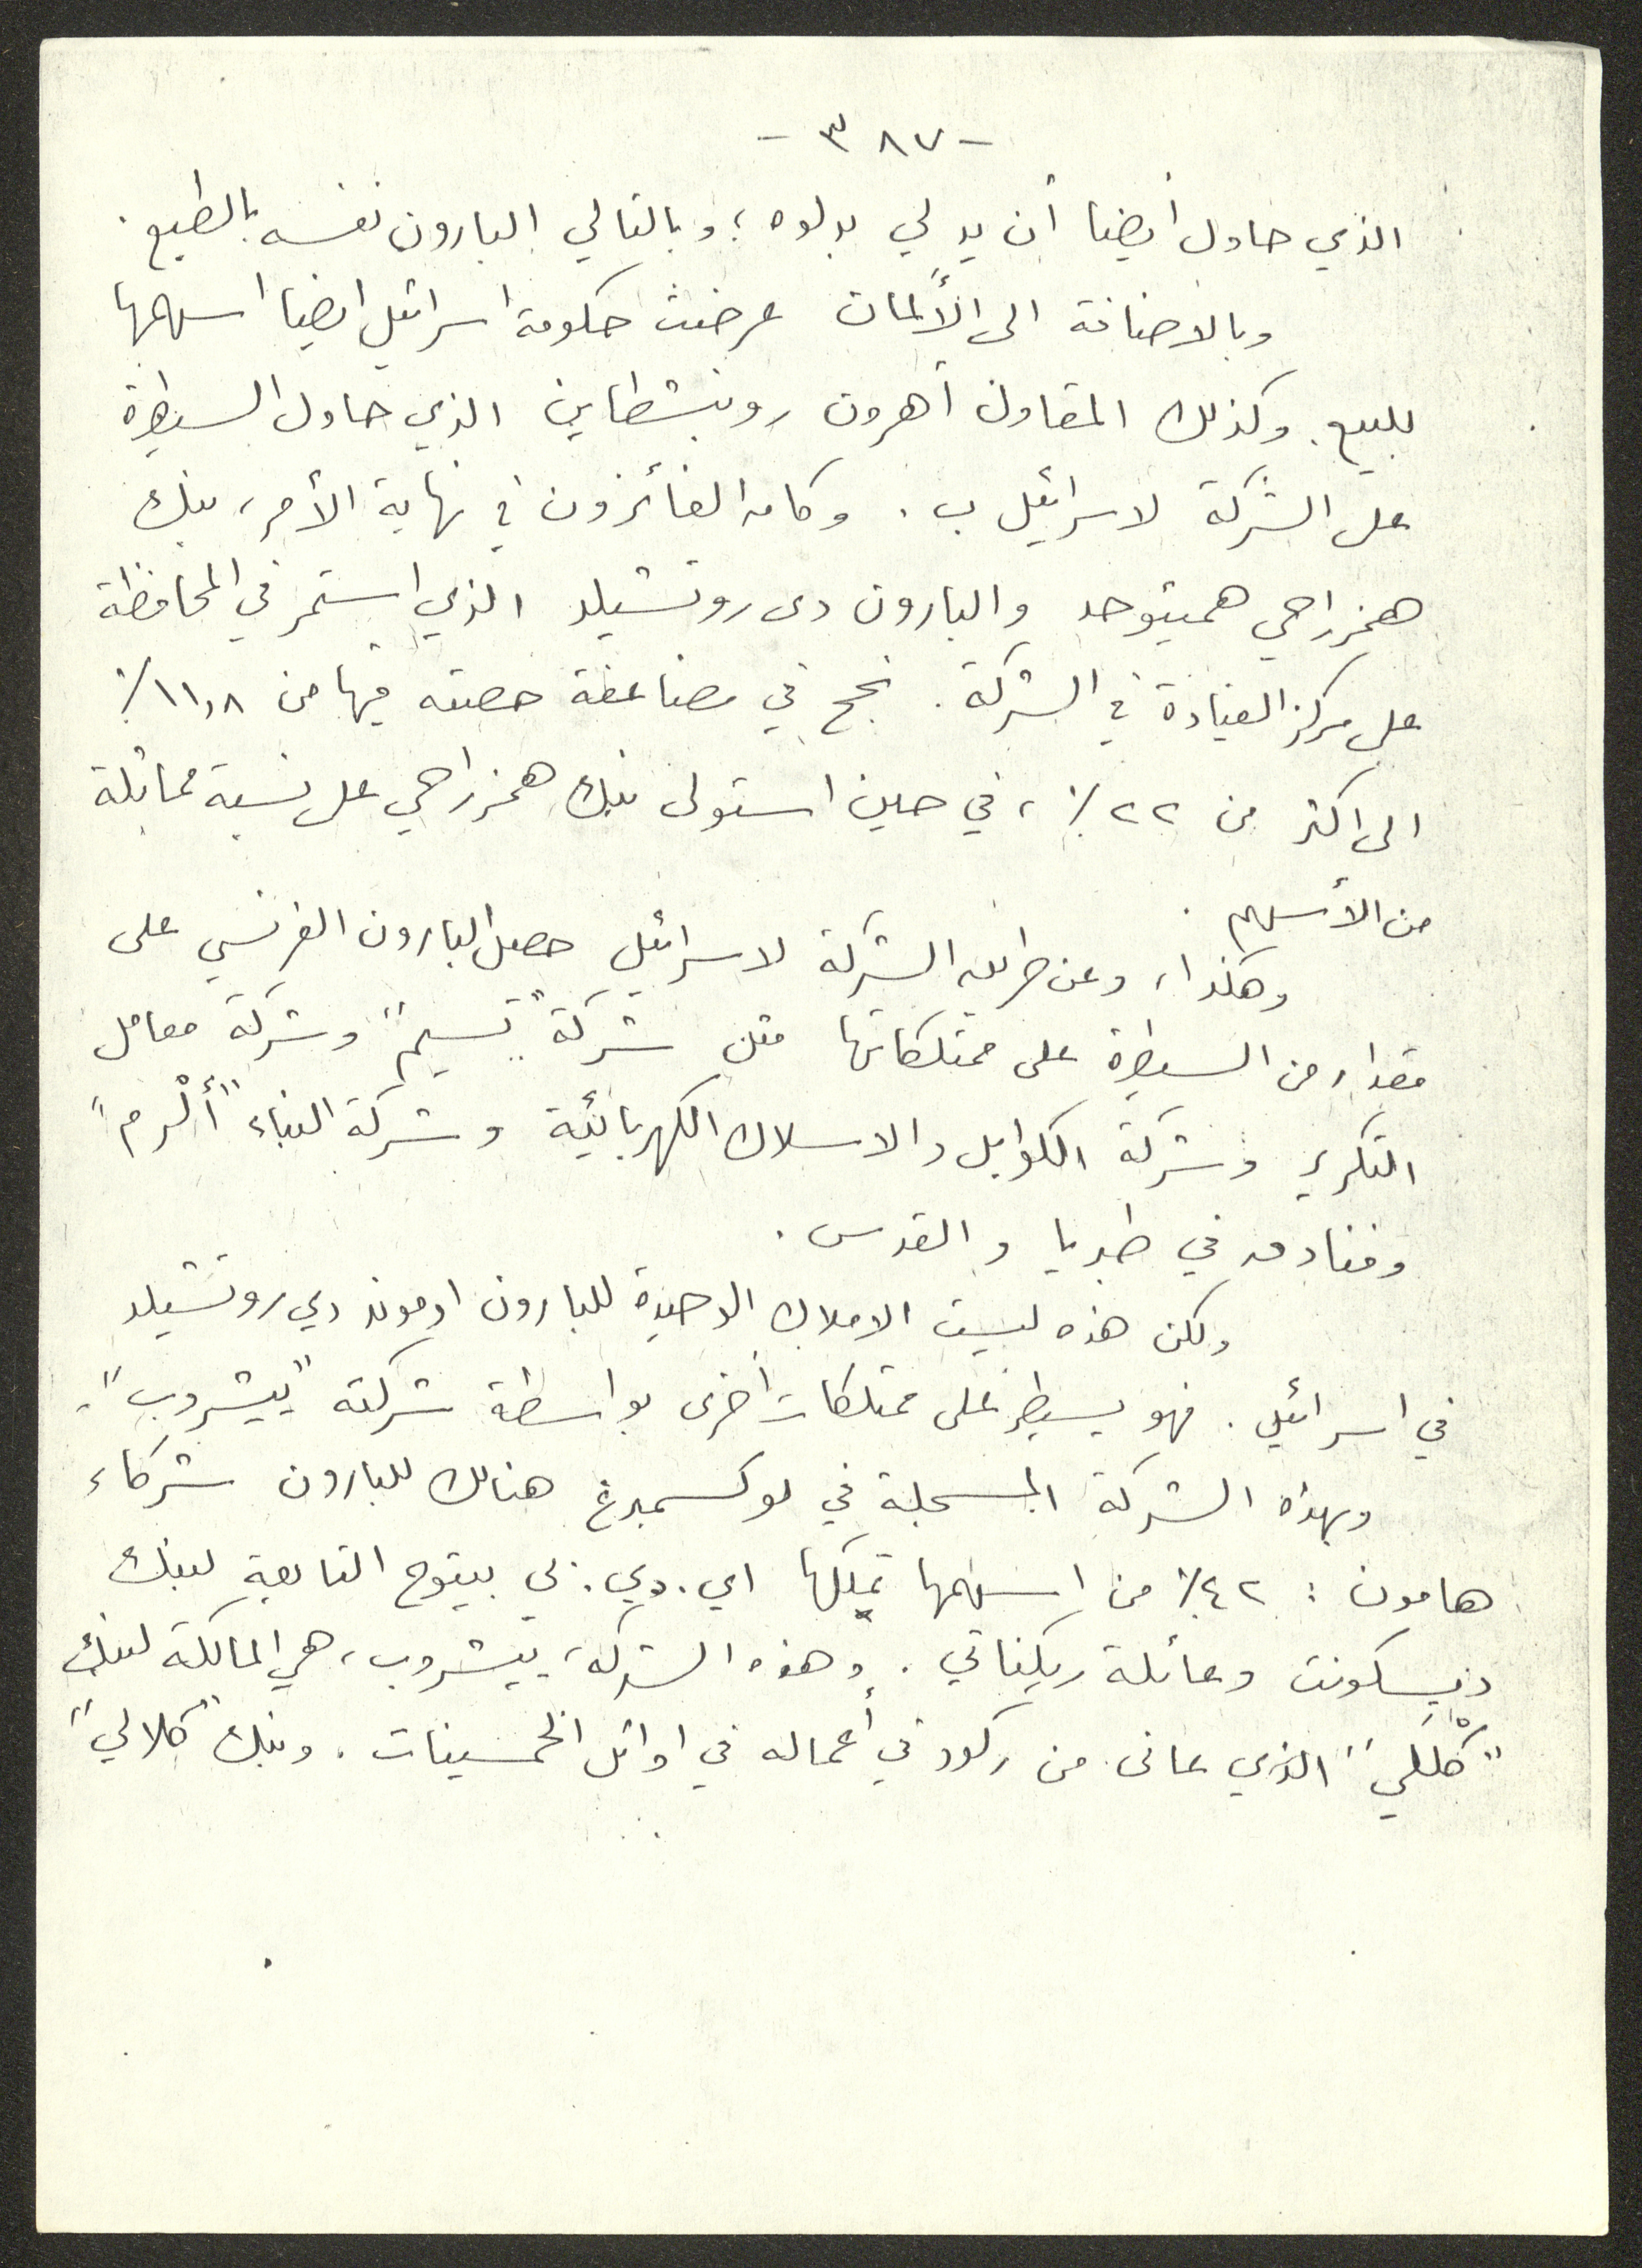 - ٣٨٧ -
الذي حاول أيضا أن يدلي بدلوه ؛ وبالتالي البارون نفسه بالطبع .
وبالاضافة الى الألمان عرضت حكومة اسرائيل ايضا اسهمها
للبيع. وكذلك المقاول أهرون روبنشطاين الذي حاول السيطرة
على الشركة لاسرائيل ب . وكان الفائزون في نهاية الأمر، بنك
همزراحي همیئوحد والبارون دى روتشيلد الذي استمر في المحافظة
على مركز القيادة في الشركة . نجح في مضاعفة حصته فيها من ١١,٨٪
الى اكثر من ٢٢٪ ، في حين استولى بنك همزراحي على نسبة مماثلة
من الأسهم .
وهكذا، وعن طريق الشركة لاسرائيل حصل البارون الفرنسي على
مقدار من السيطرة على ممتلكاتها مثل شركة "تسيم" وشركة معامل
التكرير وشركة الكوابل والاسلاك الكهربائية وشركة البناء "أَلْرم"
وفنادق في طبريا والقدس .
ولكن هذه ليست الاملاك الوحيدة للبارون ادموند دي روتشيلد
في اسرائيل . فهو يسيطر على ممتلكات أخرى بواسطة شركته "ييشروب".
وبهذه الشركة المسجلة في لوكسمبرغ هنالك للبارون شركاء
هامون : ٤٢٪ من اسهمها تملكها اي.دي.بي بيتوح التابعة لبنك
ديسكونت وعائلة ريكناتي . وهذه الشركة، ييشروب، هي المالكة لبنك
"كْلَلي" الذي عانى من ركود في أعماله في اوائل الخمسينات . وبنك "كلالي"